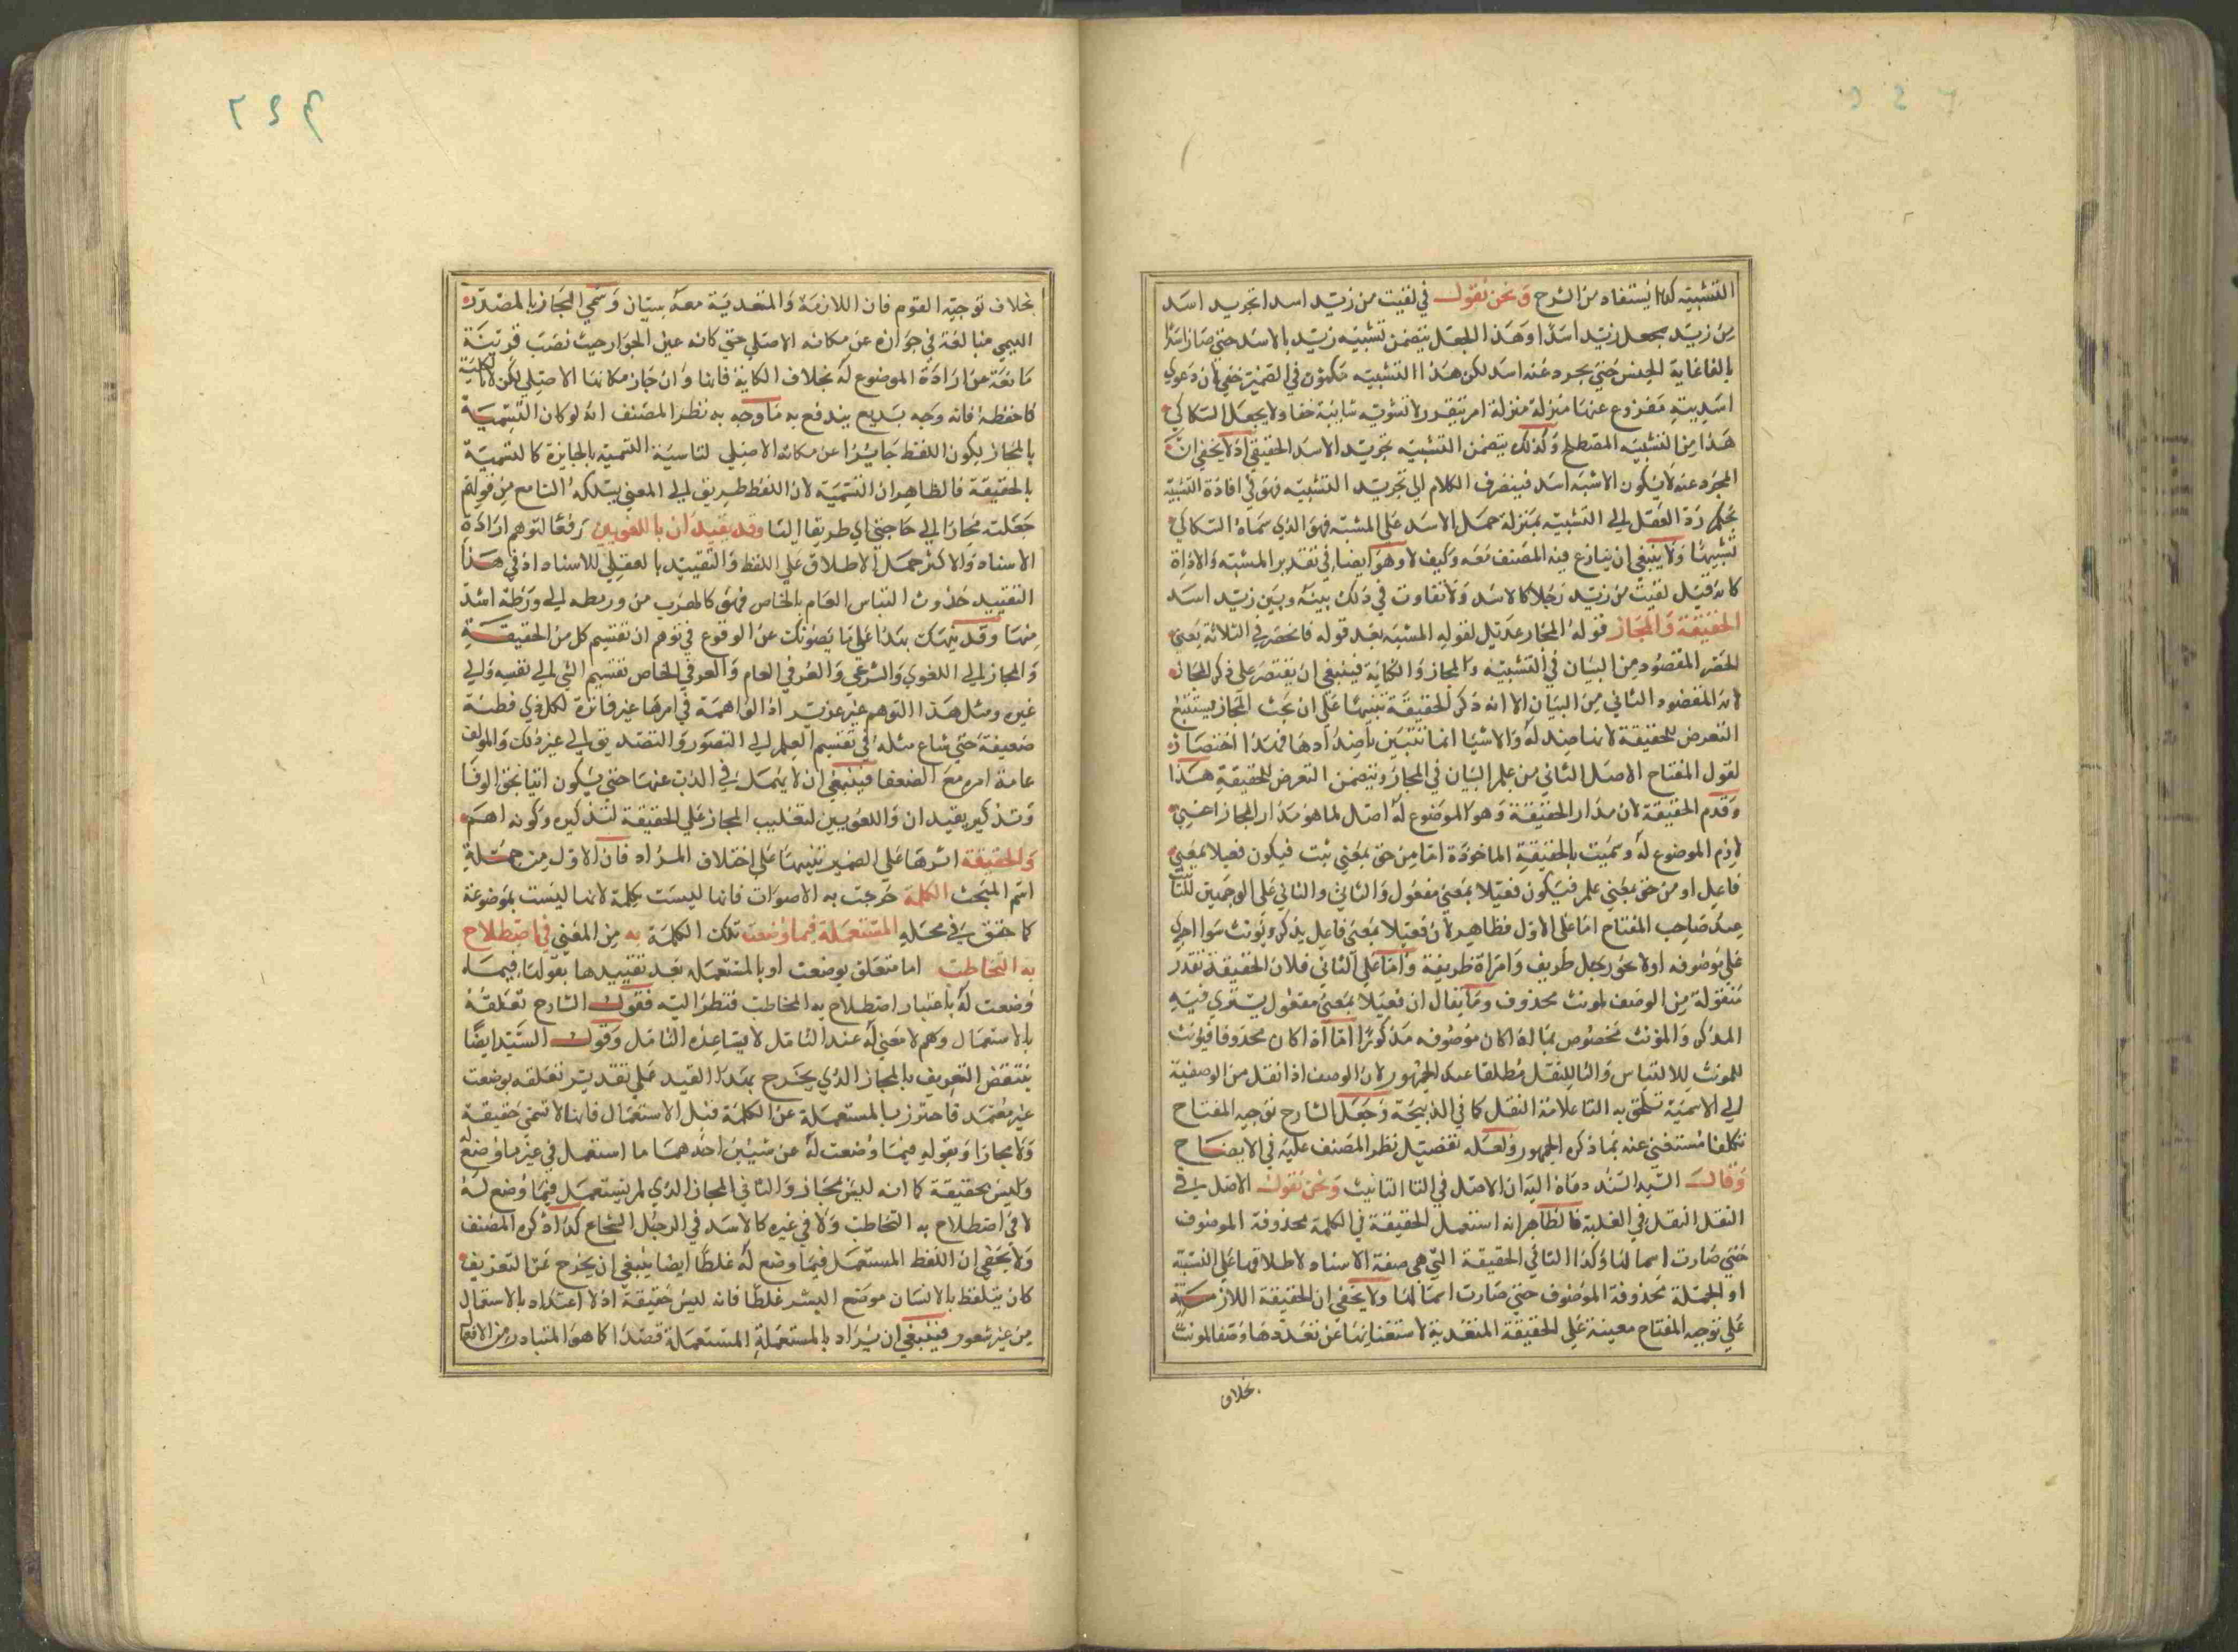 التشبيه كذا يستفاد من الشرح ونحن نقول في لقيت من زيد اسدا تجريد اسد
من زيد بجعل زيد اسدا وهذا الجعل يتضمن تشبيه زيد بالاسد حتى صار اسدا
بالغا غاية الجنس حتى يجرد عنه اسد لكن هذا التشبيه مكنون في الضمير خفي لان دعوى
اسديته مفروغ عنها منزلة منزلة امر متقرر لا تشوبه شائبة خفا ولا يجعل السكاكي
هذا من التشبيه المصطلح وكذلك يتضمن التشبيه تجريد الاسد الحقيقي اذ لا يخفى ان
المجرد عنه لا يكون الا شبه اسد فينصرف الكلام الى تجريد التشبيه فهو في افادة التشبيه
بحكم رد العقل الى التشبيه بمنزلة حمل الاسد على المشبه فهو الذي سماه السكاكي
تشبيها ولا ينبغي ان ينازع فيه المصنف معه وكيف لا وهو ايضا في تقدير المشبه والاداة
كانه قيل لقيت من زيد رجلا كالاسد ولا تفاوت في ذلك بينه وبين زيد اسد
الحقيقة والمجاز قوله المجاز عديل لقوله المشبه بعد قوله فانحصر في الثلاثة يعني
الحصر المقصود من البيان في التشبيه والمجاز والكناية فينبغي ان يقتصر على ذكر المجاز
لانه المقصود الثاني من البيان الا انه ذكر الحقيقة تنبيها على ان بحث المجاز يستتبع
التعرض للحقيقة لانها ضد له والاشيا انما تتبين باضدادها فهذا اختصار
لقول المفتاح الاصل الثاني من علم البيان في المجاز ويتضمن التعرض للحقيقة هذا
وقدم الحقيقة لان مدار الحقيقة وهو الموضوع له اصل لما هو مدار المجاز اعني
لازم الموضوع له وسميت بالحقيقة الماخوذة اما من حق بمعنى ثبت فيكون فعيلا بمعنى
فاعل او من حق بمعنى علم فيكون فعيلا بمعنى مفعول والثاني والثاني على الوجهين للتا
عند صاحب المفتاح اما على الاول فظاهر لان فعيلا بمعنى فاعل يذكر ويونث سوا اجري
على موصوفه او لا نحو رجل ظريف وامراة ظريفة واما على الثاني فلان الحقيقة تقدر
منقولة من الوصف لمونث محذوف وما يقال ان فعيلا بمعنى مفعول يستوي فيه
المذكر والمؤنث مخصوص بما اذا كان موصوفه مذكورا اما اذا كان محذوفا فيؤنث
للمونث للالتباس والتا للنقل مطلقا عند الجمهور لان الوصف اذا نقل من الوصفية
الى الاسمية تلحق به التا علامة النقل كما في الذبيحة وجعل الشارح توجيه المفتاح
تكلفا مستغنى عنه بما ذكره الجمهور ولعله تفصيل نظر المصنف عليه في الايضاح
وقال السيد السند دماه اليه ان الاصل في التا التانيث ونحن نقول الاصل في
النقل النقل في الغلبة فالظاهر انه استعمل الحقيقة في الكلمة محذوفة الموصوف
حتى صارت اسما لها وكذا التا في الحقيقة التي هي صفة الاسناد لاطلاقها على النسبة
او الجملة محذوفة الموصوف حتى صارت اسما لها ولا يخفى ان الحقيقة اللازمة
على توجيه المفتاح معينة على الحقيقة المتعدية لاستغنائها عن تعددها وصفا لمونث
بخلاف
٢٤٩
بخلاف توجيه القوم فان اللازمة والمتعدية معه سيان وسمي المجاز بالمصدر
الميمي مبالغة في جوازه عن مكانه الاصلي حتى كانه عين الجواز حيث نصب قرينة
مانعة عن ارادة الموضوع له بخلاف الكناية فانها وان جاز مكانها الاصلي لكن لا بالكلية
فاحفظه فانه وجه بديع يندفع به ما وجه به نظر المصنف انه لو كان التسمية
بالمجاز لكون اللفظ جائزا عن مكانه الاصلي لناسبه التسمية بالجايزة كالتسمية
بالحقيقة فالظاهر ان التسمية لان اللفظ طريق الى المعنى يسلكه السامع من قولهم
جعلته مجازا الى حاجتي اي طريقا اليها وقد يقيدان باللغويين رفعا لتوهم ارادة
الاسناد والاكثر حمل الاطلاق على اللفظ والتقييد بالعقلي للاسناد اذ في هذا
التقييد حذوث التباس العام بالخاص فهو كالهرب من ورطه الى ورطة اشد
منها وقد ينهتك بهذا على ما يصونك عن الوقوع في توهم ان تقسيم كل من الحقيقة
والمجاز الى اللغوي والشرعي والعرفي العام والعرفي الخاص تقسيم الشي الى نفسه والى
غيره ومثل هذا التوهم غير عزيز اذ الواهمة في امرها غير فاترة لكل ذي فطنة
ضعيفة حتى شاع مثله في تقسيم العلم الى التصور والتصديق الى غير ذلك والمولف
عامة امره مع الضعفا فينبغي ان لا يهمل في الذب عنها حتى يكون اتيا بحق الوفا
وتذكير يقيدان واللغويين لتغليب المجاز على الحقيقة لتذكيره وكونه اهم
والحقيقة اثرها على الضمير تنبيها على اختلاف المراد فان الاول من جملة
اسم المبحث الكلمة خرجت به الاصوات فانها ليست بكلمة لانها ليست بموضوعة
كما حقق في محله المستعملة فيما وضعت تلك الكلمة به من المعنى في اصطلاح
به التخاطب اما متعلق بوضعت او بالمستعملة بعد تقييدها بقولنا فيما
وضعت له باعتبار اصطلاح به المخاطب فنظرا اليه فقول الشارح تعلقه
بالاستعمال وهم لا معنى له عند التامل لا يساعده التامل وقول السيد ايضا
ينتقض التعريف بالمجاز الذي يخرج بهذا القيد على تقدير تعلقه بوضعت
غير معتمد فاحترز بالمستعملة عن الكلمة قبل الاستعمال فانها لا تسمى حقيقة
ولا مجازا وبقوله فيما وضعت له عن شيئين احدهما ما استعمل في غير ما وضع له
وليس بحقيقة كما انه ليس بمجاز والثاني المجاز الذي لم يستعمل فيما وضع له
لا في اصطلاح به التخاطب ولا في غيره كالاسد في الرجل الشجاع كذا ذكره المصنف
ولا يخفى ان اللفظ المستعمل فيما وضع له غلطا ايضا ينبغي ان يخرج عن التعريف
كان يتلفظ بالانسان موضع البشر غلطا فانه ليس حقيقة اذ لا اعتداد بالاستعمال
من غير شعور فينبغي ان يراد بالمستعملة المستعملة قصدا كما هو المتبادر من الافعال